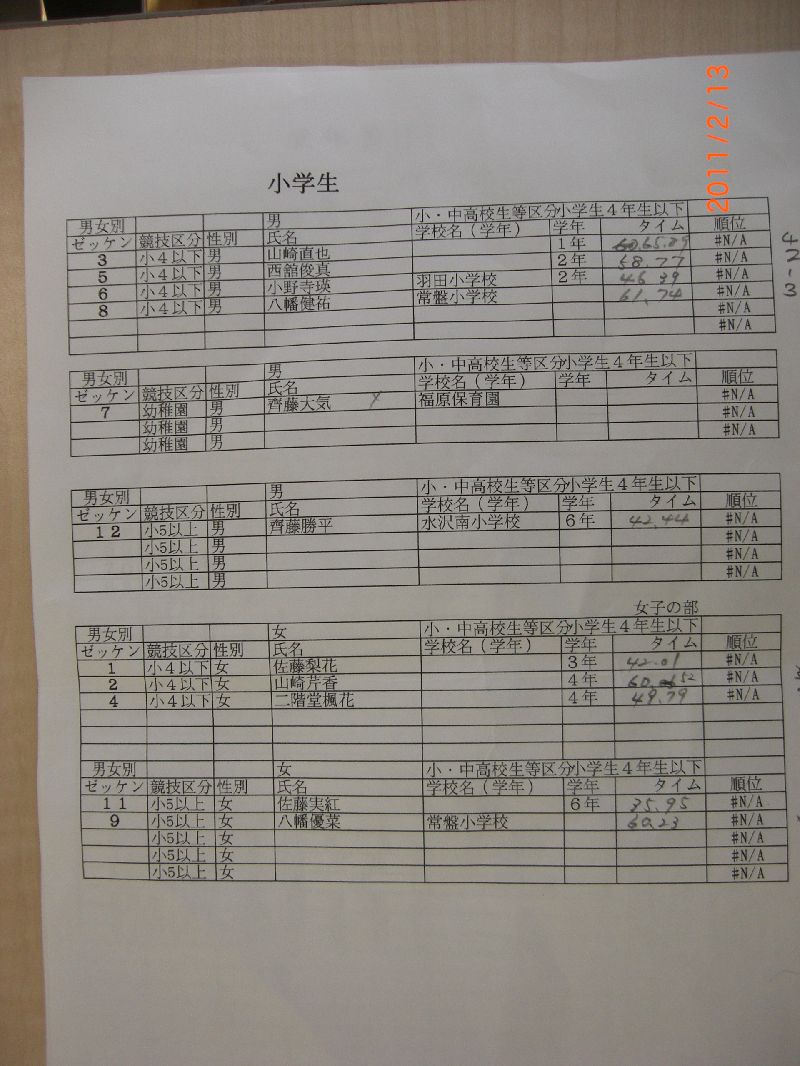 2011/2/13
小学生
男女別 男 小・中高校生等区分 小学生４年生以下
ゼッケン 競技区分 性別 氏名 学校名（学年） 学年 タイム 順位
3 小４以下 男 山崎直也 1年 65.09 #N/A 4
5 小４以下 男 西舘俊真 2年 58.77 #N/A 2
6 小４以下 男 小野寺瑛 羽田小学校 2年 46.39 #N/A -
8 小４以下 男 八幡健祐 常盤小学校 61.74 #N/A 3
#N/A
#N/A
男女別 男 小・中高校生等区分 小学生４年生以下
ゼッケン 競技区分 性別 氏名 学校名（学年） 学年 タイム 順位
7 幼稚園 男 齊藤大気 福原保育園 #N/A
幼稚園 男 #N/A
幼稚園 男 #N/A
男女別 男 小・中高校生等区分 小学生４年生以下
ゼッケン 競技区分 性別 氏名 学校名（学年） 学年 タイム 順位
12 小5以上 男 齊藤勝平 水沢南小学校 6年 42.44 #N/A
小5以上 男 #N/A
小5以上 男 #N/A
小5以上 男 #N/A
女子の部
男女別 女 小・中高校生等区分 小学生４年生以下
ゼッケン 競技区分 性別 氏名 学校名（学年） 学年 タイム 順位
1 小４以下 女 佐藤梨花 3年 42.01 #N/A
2 小４以下 女 山崎芹香 4年 60.52 #N/A
4 小４以下 女 二階堂楓花 4年 49.79 #N/A
男女別 女 小・中高校生等区分 小学生４年生以下
ゼッケン 競技区分 性別 氏名 学校名（学年） 学年 タイム 順位
11 小5以上 女 佐藤実紅 6年 35.95 #N/A
9 小5以上 女 八幡優菜 常盤小学校 60.23 #N/A
小5以上 女 #N/A
小5以上 女 #N/A
小5以上 女 #N/A